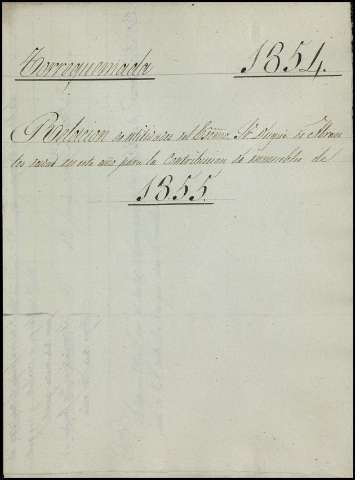 Torrequemada 1854.
Relacion de utilidades del Escmo. Sr. Duque de Abran
tes dada en este año para la Contribucion de inmuebles de
1855.